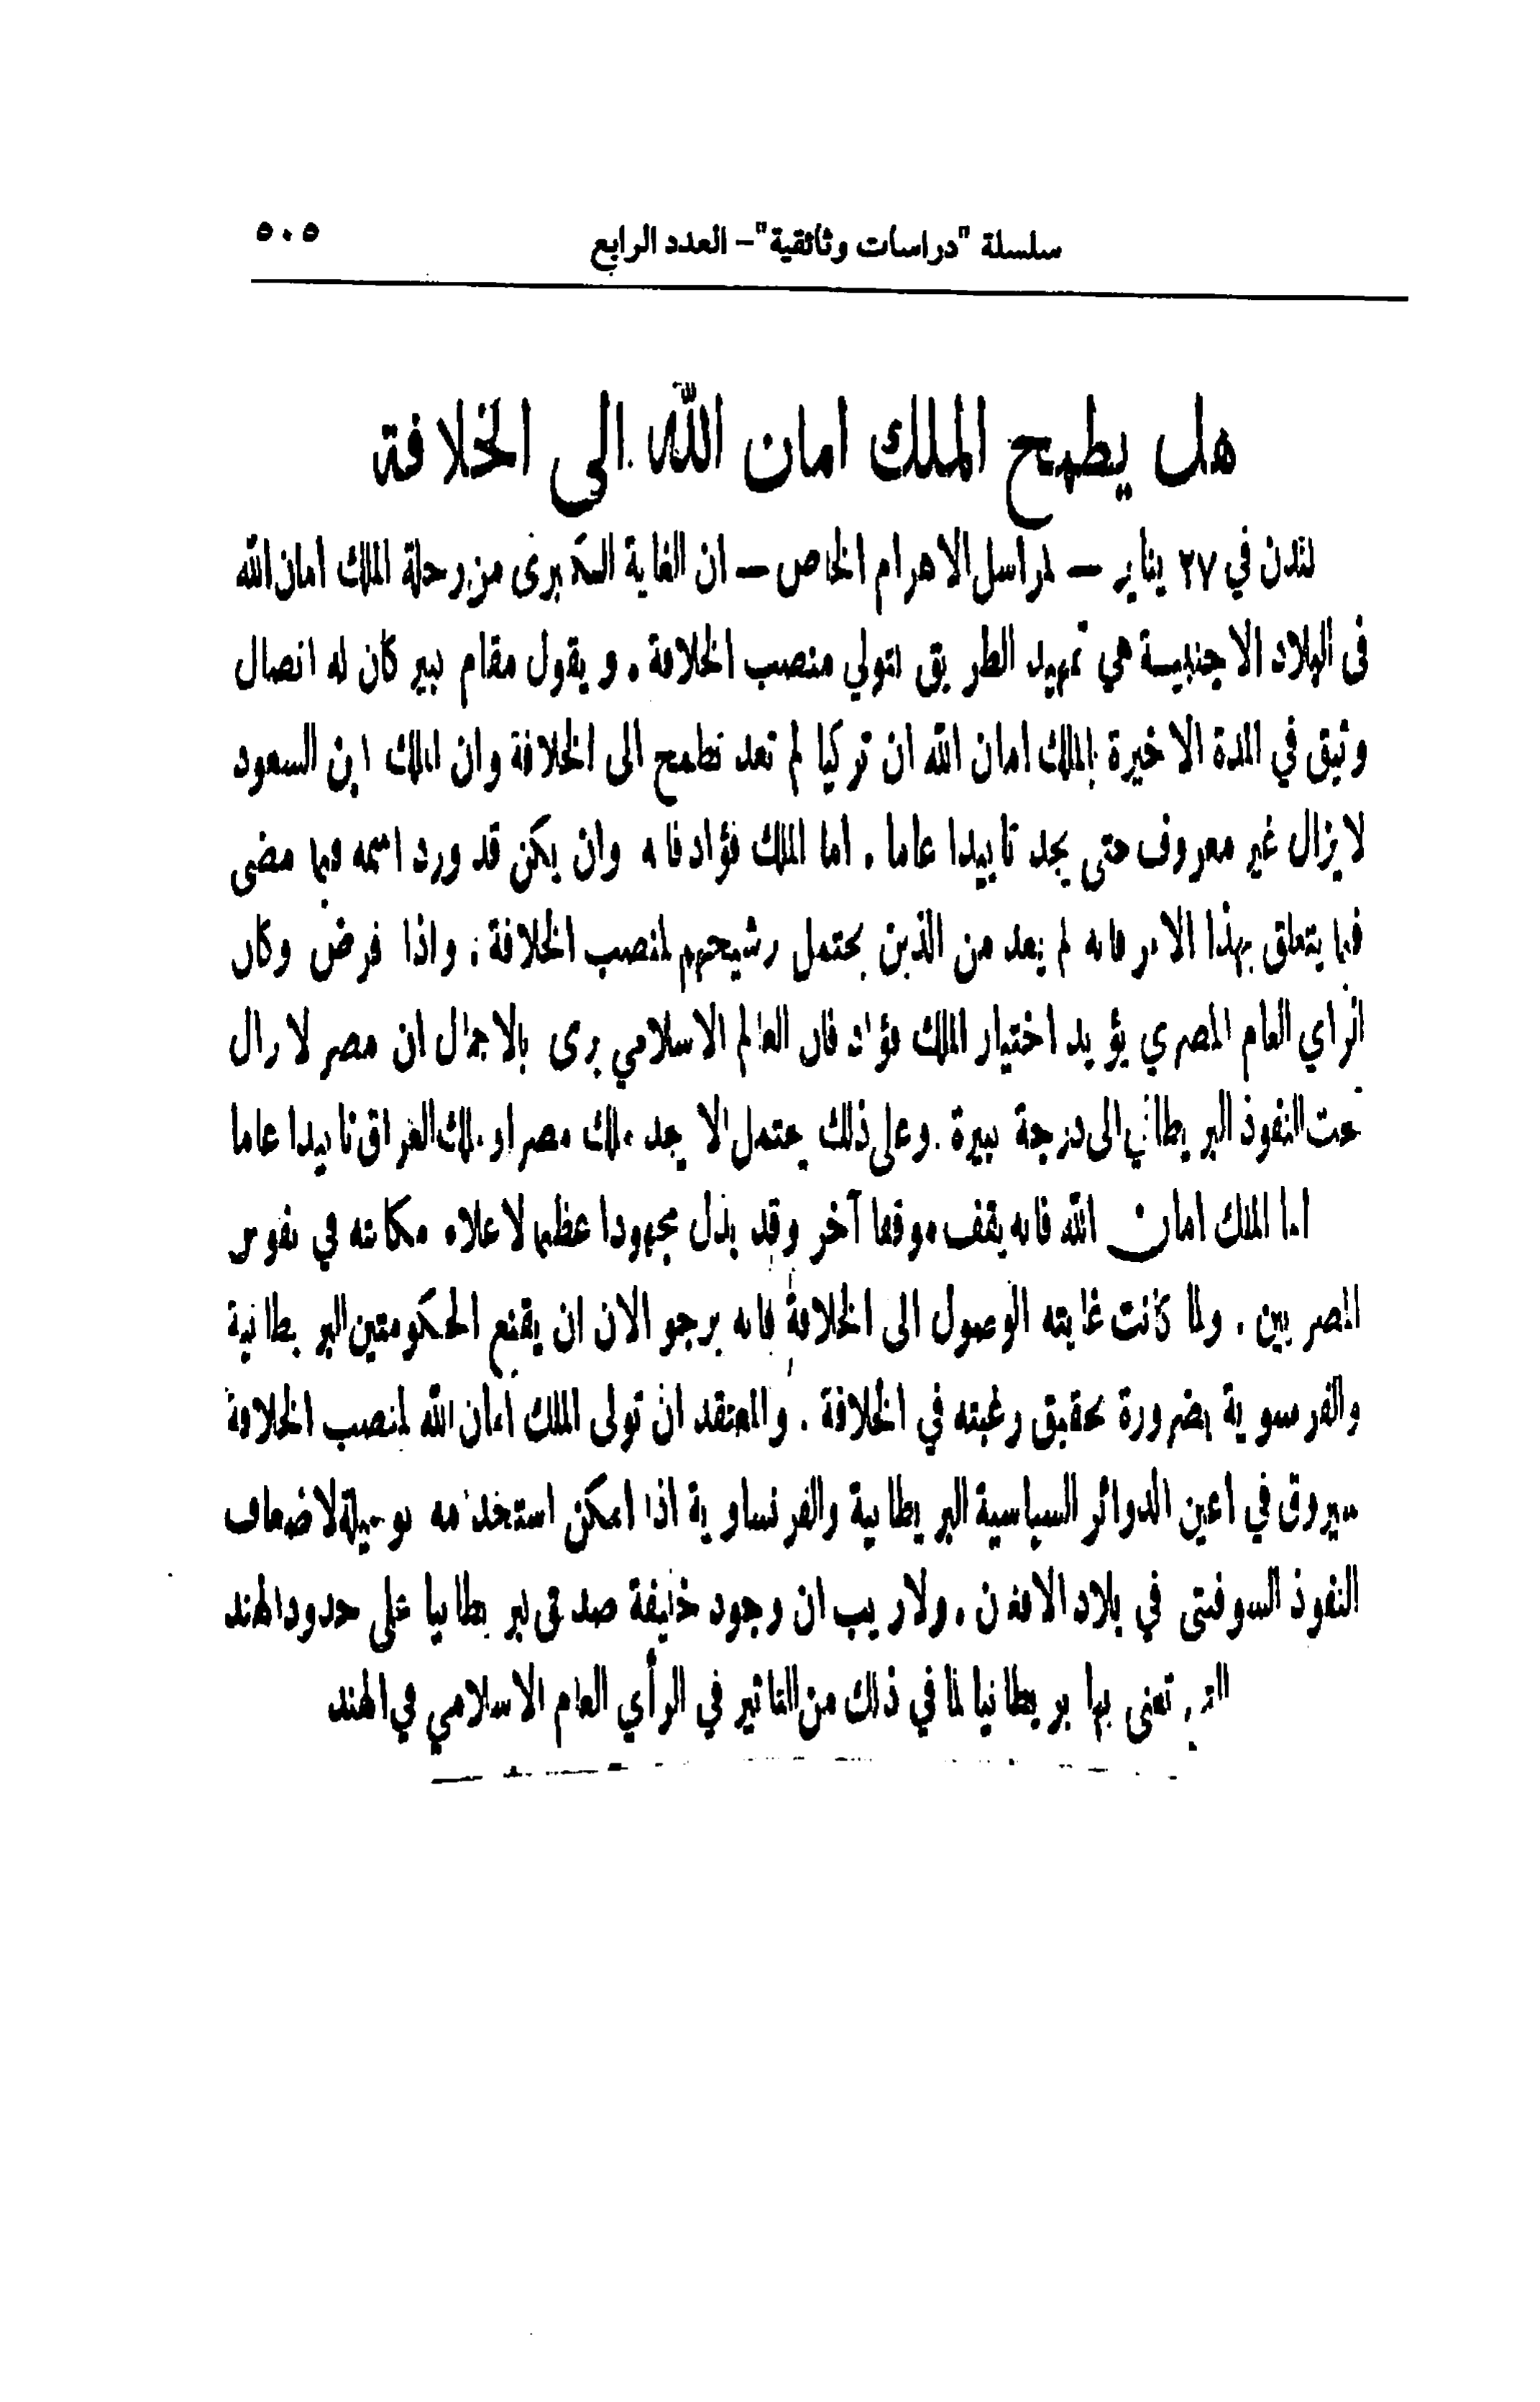 سلسلة "دراسات وثائقية" – العدد الرابع ٥٠٥
هل يطمح الملك امان الله الى الخلافة
لندن في ٢٧ يناير — لمراسل الاهرام الخاص — ان الغاية الكبرى من رحلة الملك امان الله
فى البلاد الاجنبية هي تمهيد الطريق لتولي منصب الخلافة . ويقول مقام كبير كان له اتصال
وثيق في المدة الاخيرة بالملك امان الله ان تركيا لم تعد تطمح الى الخلافة وان الملك ابن السعود
لا يزال غير معروف حتى يجد تاييدا عاما . اما الملك فؤاد فانه وان يكن قد ورد اسمه فيما مضى
فيما يتعلق بهذا الامر فانه لم يعد من الذين يحتمل ترشيحهم لمنصب الخلافة . واذا فرض وكان
الراي العام المصري يؤيد اختيار الملك فؤاد فان العالم الاسلامي يرى بالاجمال ان مصر لا تزال
تحت النفوذ البريطاني الى درجة كبيرة . وعلى ذلك يحتمل الا يجد ملك مصر او ملك العراق تاييدا عاما
اما الملك امان الله فانه يقف موقفا آخر وقد بذل مجهودا عظيما لاعلاء مكانته في نفوس
المصريين . ولما كانت غايته الوصول الى الخلافة فانه يرجو الان ان يقنع الحكومتين البريطانية
والفرنسوية بضرورة تحقيق رغبته في الخلافة . والمعتقد ان تولى الملك امان الله لمنصب الخلافة
سيروق في اعين الدوائر السياسية البريطانية والفرنساوية اذا امكن استخدامه كوسيلة لاضعاف
النفوذ السوفيتى في بلاد الافغان . ولا ريب ان وجود خليفة صديق لبريطانيا على حدود الهند
التي تعنى بها بريطانيا لما في ذلك من التاثير في الرأي العام الاسلامي في الهند